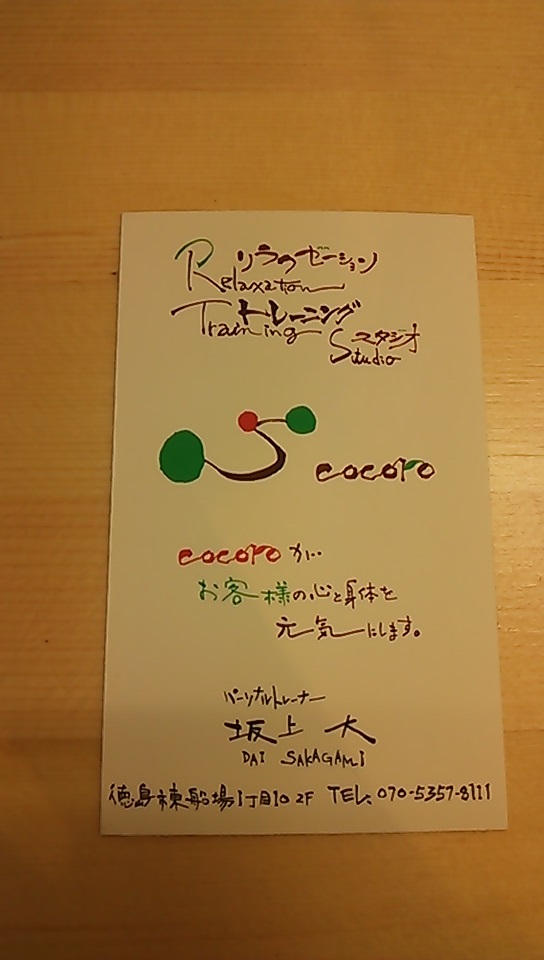 リラクゼーション
Relaxation
トレーニング
Training
スタジオ
Studio
cocoro
cocoroが…
お客様の心と身体を
元気にします。
パーソナルトレーナー
坂上 大
DAI SAKAGAMI
徳島市東船場1丁目10 2F TEL: 070-5357-8111